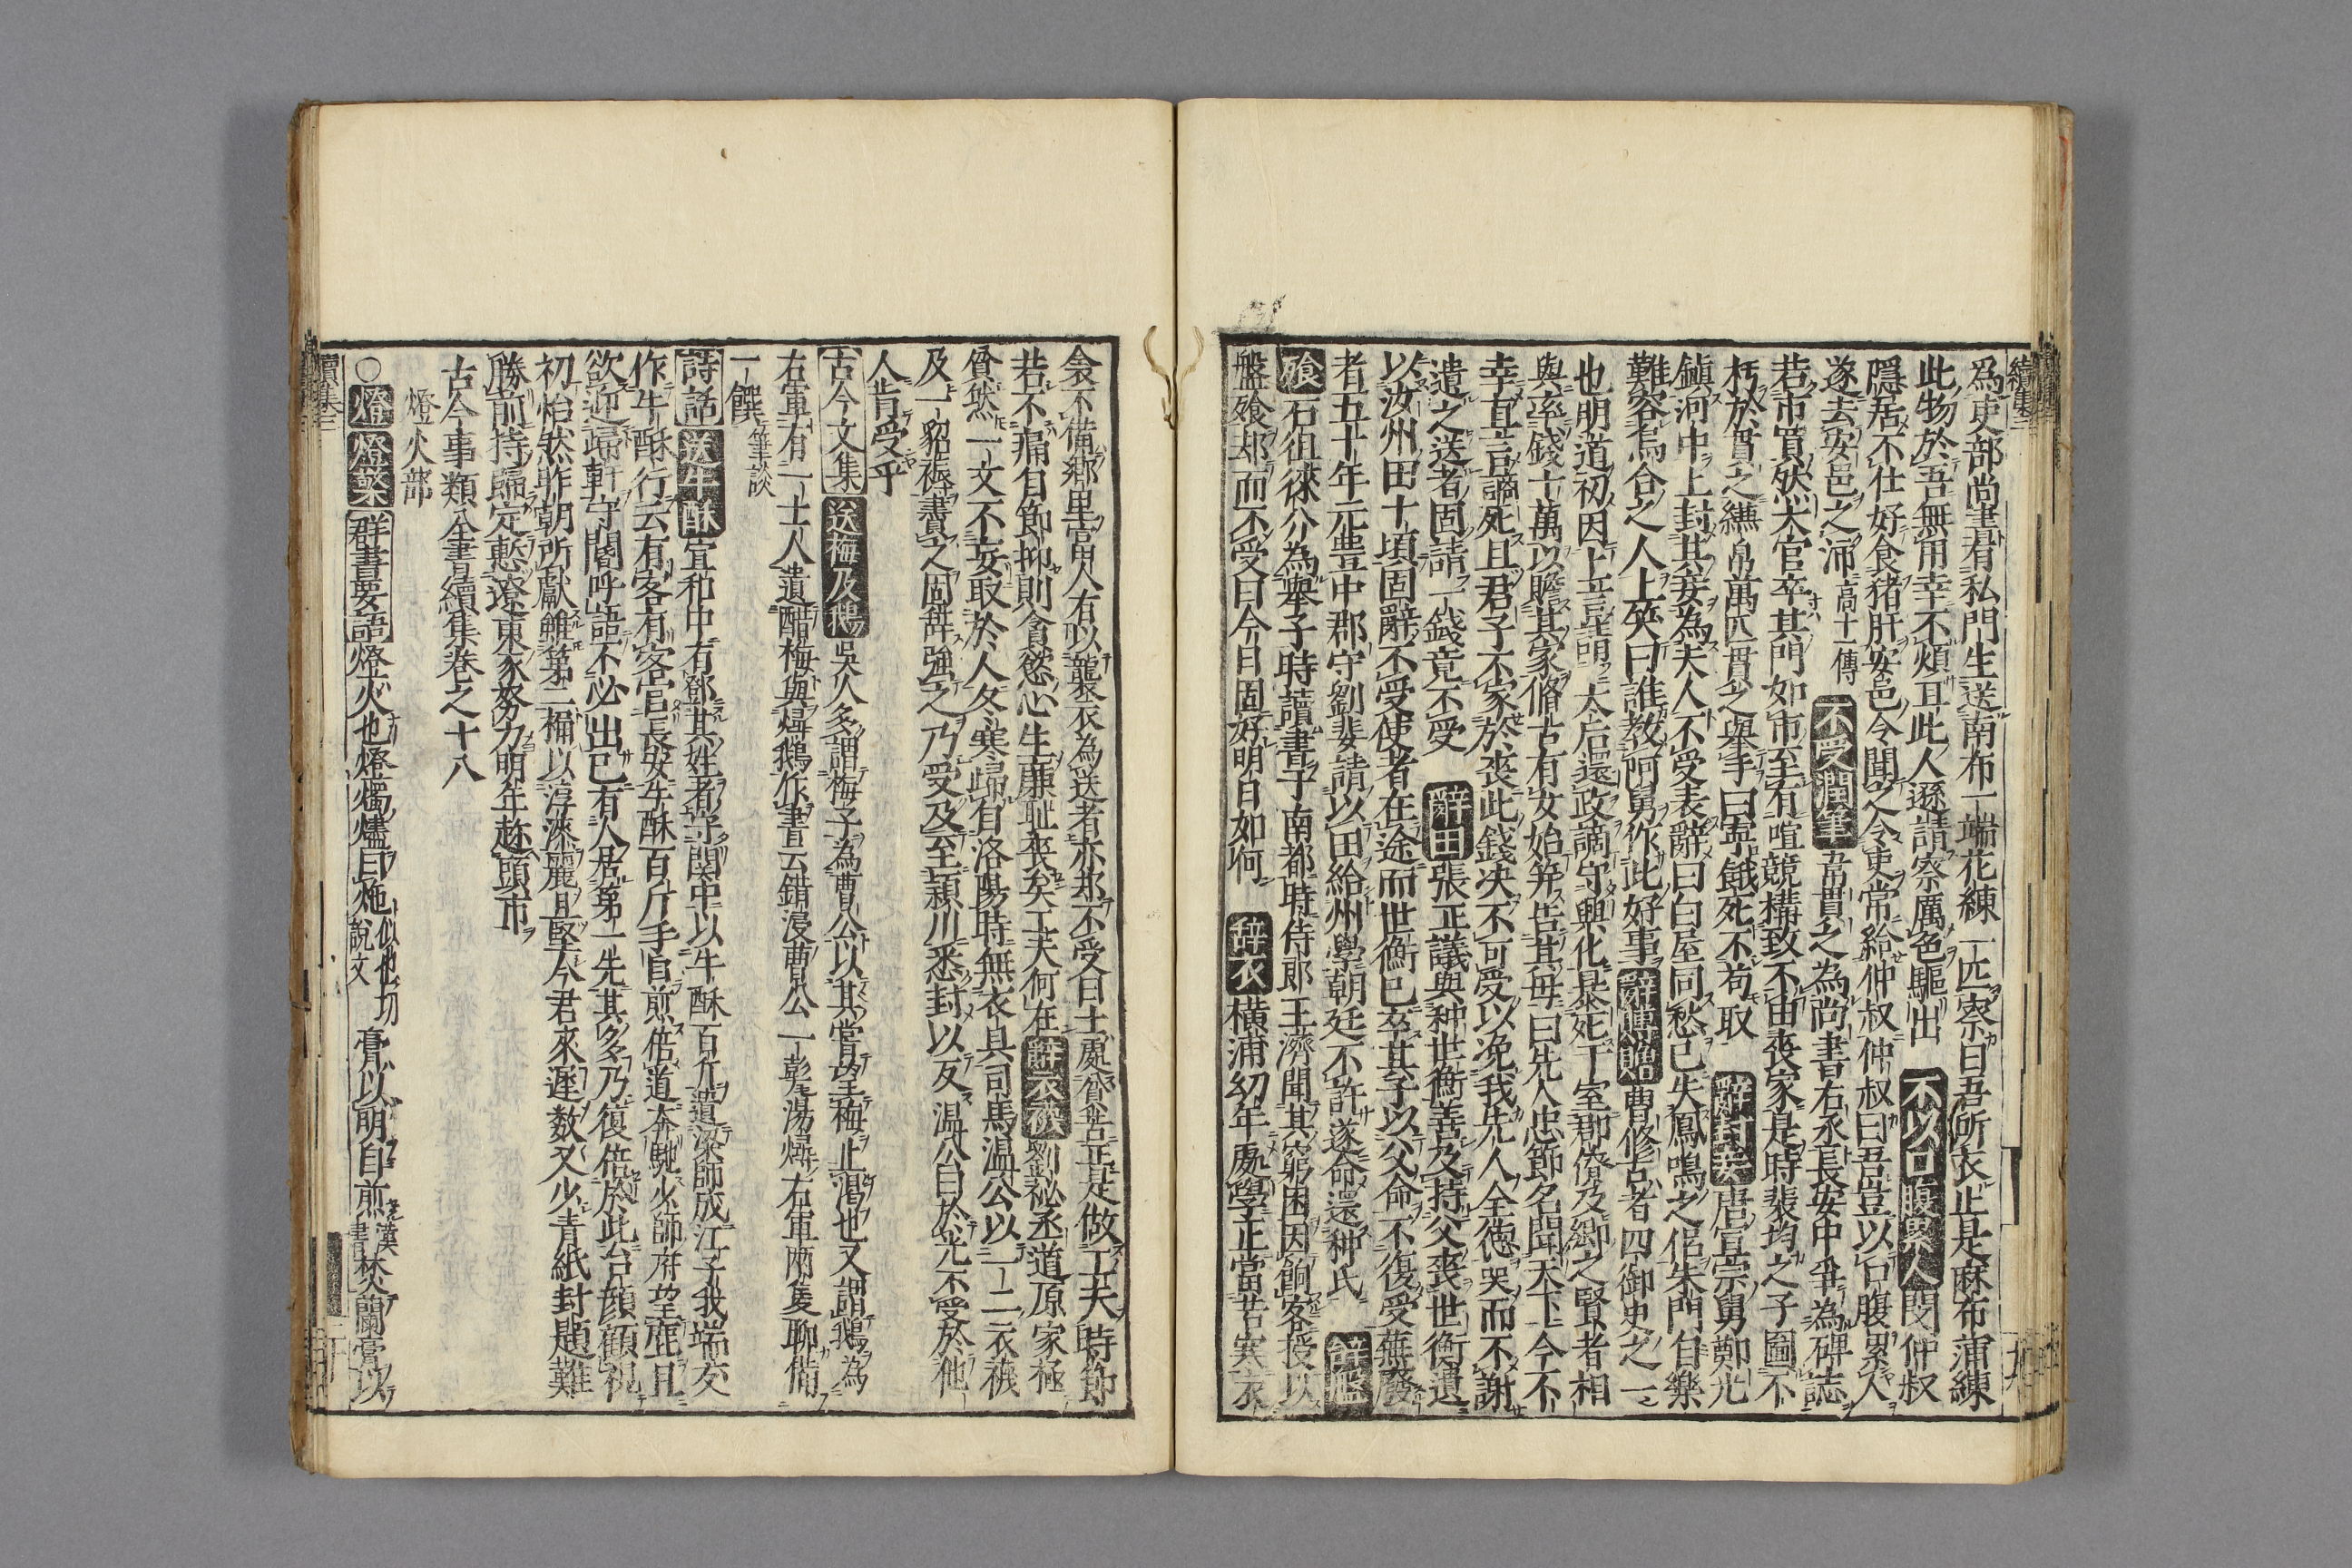 爲吏部尚書有私門生送南布一端花練一匹察曰吾所衣止是麻布蒲練
此物於吾無用幸不煩耳此人遜請察厲色驅出 不以口腹累人 閔仲叔
隱居不仕好食猪肝安邑令聞之令吏常給仲叔仲叔曰吾豈以口腹累人
遂去安邑之沛 高士傳 不受潤筆 韋貫之為尚書右丞長安中爭為碑誌
若市買然大官卒其門如市至有喧競構致不由喪家是時裴均之子圖不
朽於貫之縑帛萬匹貫之舉手曰寧餓死不苟取 辭封妾 唐宣宗舅鄭光
鎮河中上封其妾為夫人不受表辭曰白屋同愁已失鳳鳴之侶朱門自樂
難容烏合之人上笑曰誰教阿舅作此好事 辭賻贈 曹修古者四御史之一
也明道初因上章請太后還政謫守興化暴死于室郡僚及鄉之賢者相
與率錢十萬以贍其家脩古有女始笄告其母曰先人忠節名聞天下今不
幸直言謫死且君子不家於喪此錢决不可受以浼我先人全德哭而不謝
遺之送者固請一錢竟不受 辭田 張正議與种世衡善及持父喪世衡遺
以汝州田十頃固辭不受使者在途而世衡已卒其子以父命不復受蕪廢
者五十年元豊中郡守劉斐請以田給州學朝廷不許遂命還种氏 辭盤
飧 石徂徠介為舉子時讀書于南都時侍郎王濟聞其窮困因餉客授以
盤飧却而不受曰今日固好明日如何 辞衣 橫浦幼年處學正當苦寒衣
衾不備鄉里富人有以襲衣為送者亦却不受曰士處貧苦正是做工夫時節
若不痛自節抑則貪慾心生廉耻喪矣工夫何在 辭衣襪 劉祕丞道原家極
貧然一文不妄取於人冬寒歸有洛陽時無衣具司馬温公以一二衣襪
及一貂褥賮之固辞強之乃受及至潁川悉封以反温公曰於光不受於他
人肯受乎
古今文集 送梅及鵝 吳人多謂梅子為曹公以其嘗望梅止渴也又謂鵝為
右軍有一士人遺醋梅與燖鵝作書云錯浸曹公一甏湯燖右軍兩隻聊備
一饌 筆談
詩話 送牛酥 宣和中有鄧其姓者守関中以牛酥百斤遺梁師成江子我端友
作牛酥行云有客有客官長安牛酥百斤手自煎倍道奔馳少師府望塵且
欲迎歸軒守閽呼語不必出已有人居第一先其多乃復倍於此台顔顧視
初怡然昨朝所獻雖第二桶以淳漆麗且堅今君來遲数又少青紙封題難
勝前持歸定慙遼東豕努力明年趂頭市
古今事類全書續集卷之十八
燈火部
○燈 燈檠 群書要語 燈火也燈燭燼曰灺 似也切說文 膏以明自煎 漢書 焚蘭膏以
續集